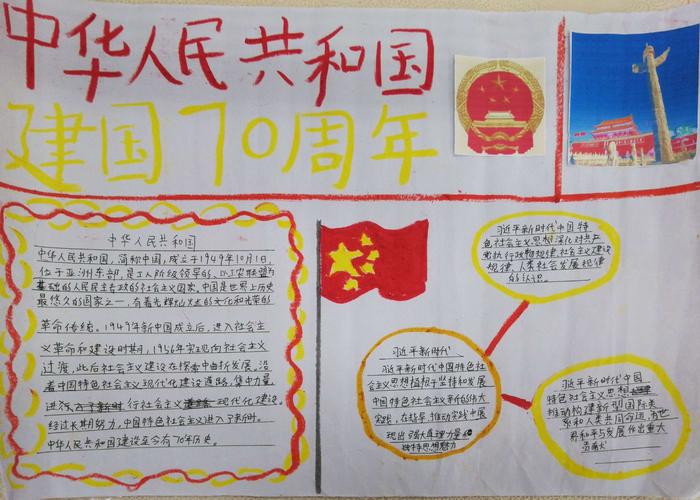 中华人民共和国
建国70周年
中华人民共和国
中华人民共和国,简称中国,成立于1949年10月1日,
位于亚洲东部,是工人阶级领导的,以工农联盟为
基础的人民民主专政的社会主义国家,中国是世界上历史
最悠久的国家之一,有着光辉灿烂的文化和光荣的
革命传统。1949年新中国成立后,进入社会主
义革命和建设时期,1956年实现向社会主义
过渡,此后社会主义建设在探索中曲折发展。沿
着中国特色社会主义现代化建设道路,集中力量
进行社会主义现代化建设。
经过长期努力,中国特色社会主义进入了新时。
中华人民共和国建设至今有70年历史。
习近平新时代中国特
色社会主义思想深化对共产
党执行政物规律,社会主义建设
规律,人类社会发展规律
的认识。
习近平新时代
习近平新时代中国特色社
会主义思想植根于坚持和发展
中国特色社会主义新的伟大
实践,在指导、推动实践中展
现出强大真理力量和
独特思想魅力
习近平新时代中国
特色社会主义思想
推动构建新型国际关
系和人类共同命运,为世
界和平与发展作出重大
贡献